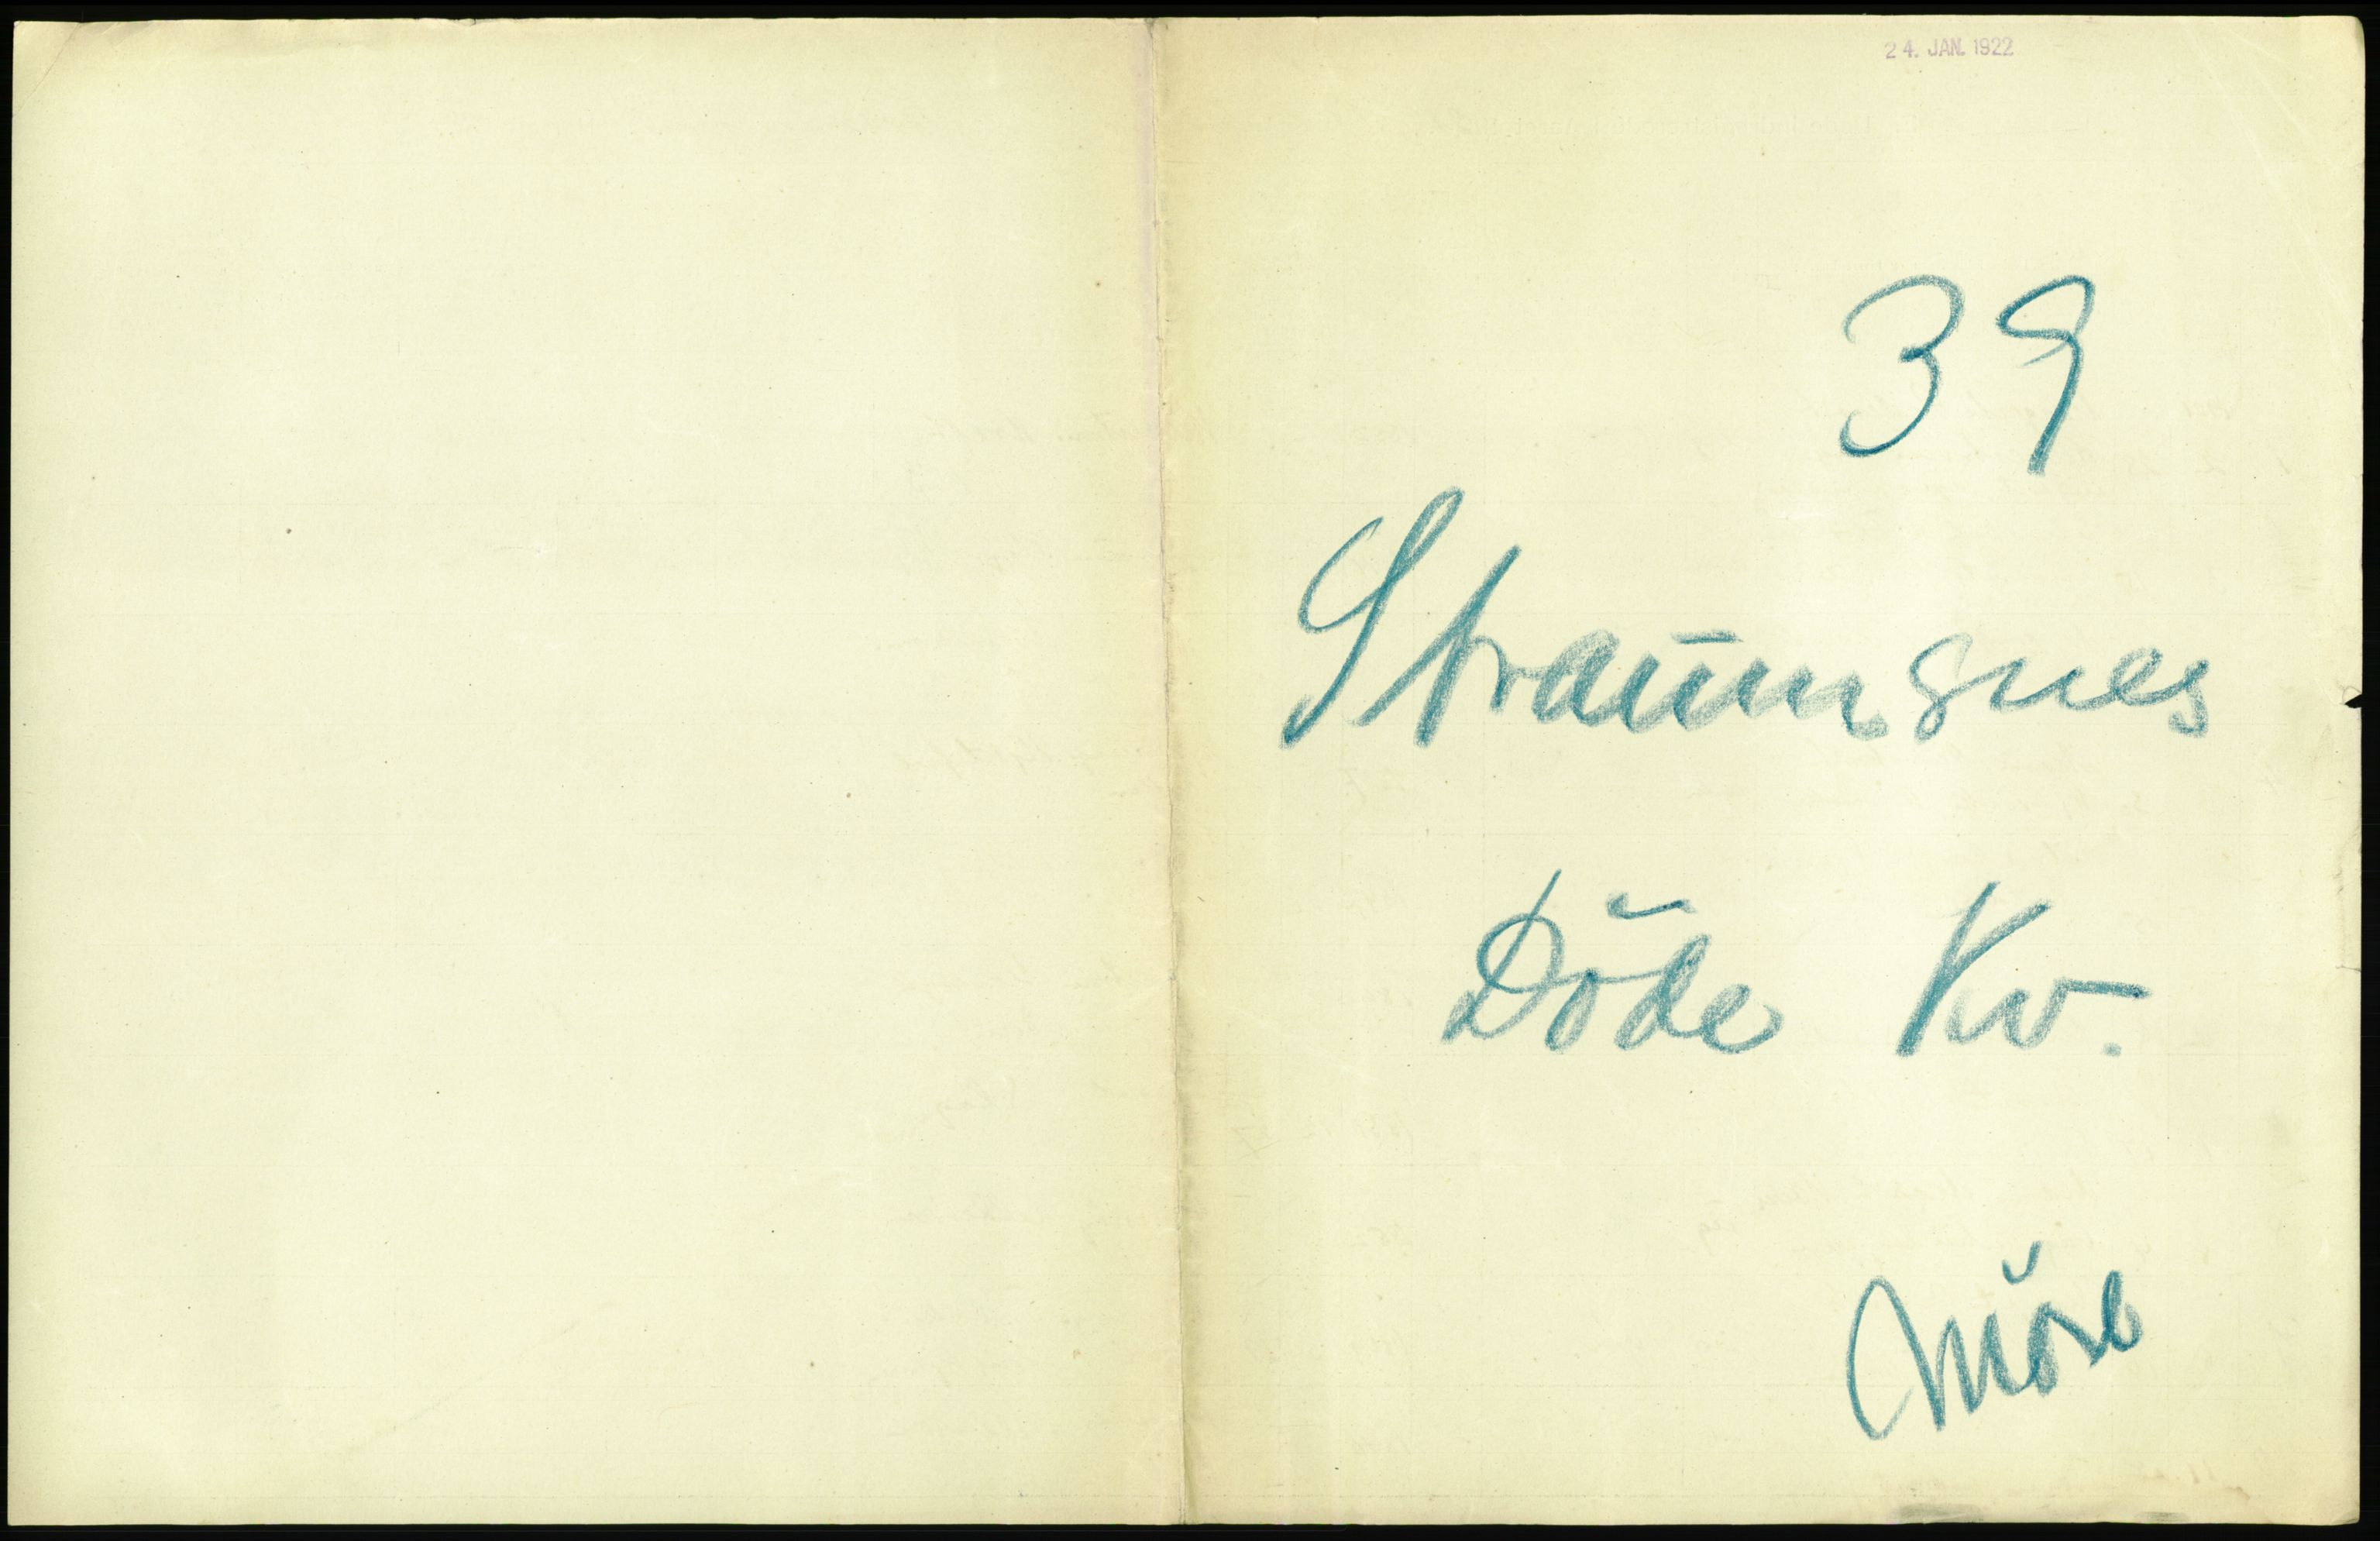 24. JAN. 1922
39
Straumsnes
Döde Kv.
Möre